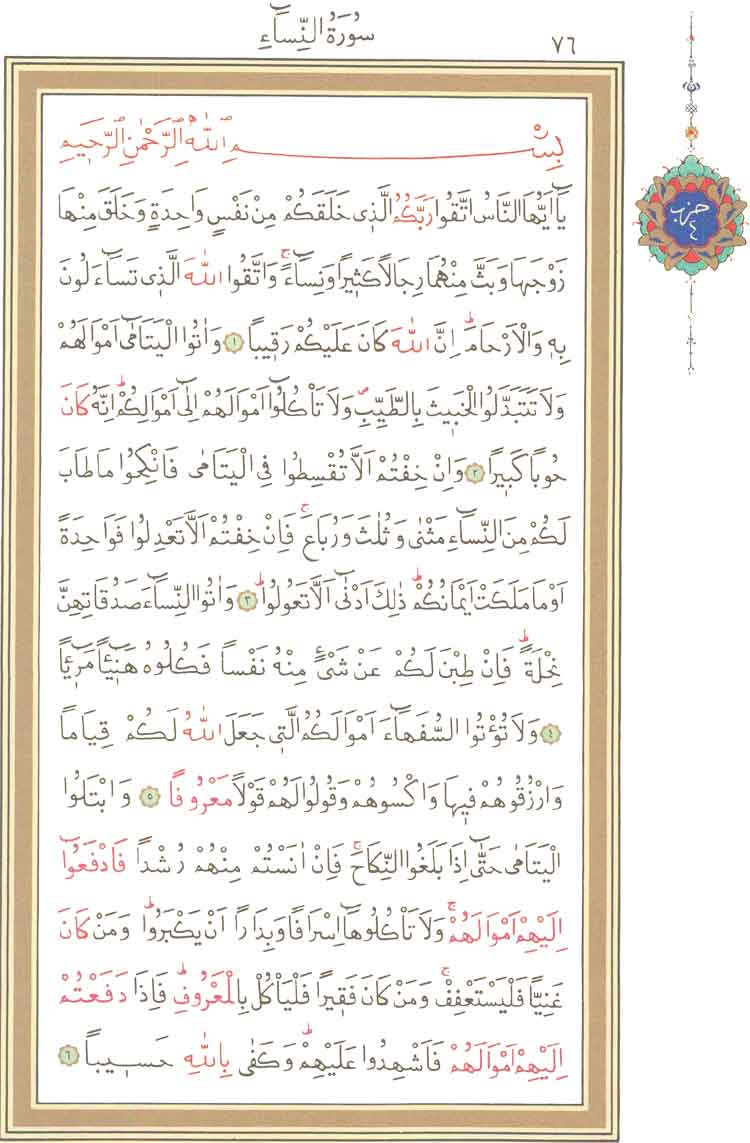 سُورَةُ النِّسَٓاءِ
٧٦
بِسْمِ اللّٰهِ الرَّحْمٰنِ الرَّحٖيمِ
حزب ٤
يَٓا اَيُّهَا النَّاسُ اتَّقُوا رَبَّكُمُ الَّذٖى خَلَقَكُمْ مِنْ نَفْسٍ وَاحِدَةٍ وَخَلَقَ مِنْهَا
زَوْجَهَا وَبَثَّ مِنْهُمَا رِجَالاً كَثٖيراً وَنِسَٓاءًۚ وَاتَّقُوا اللّٰهَ الَّذٖى تَسَٓاءَلُونَ
بِهٖ وَالْاَرْحَامَۜ اِنَّ اللّٰهَ كَانَ عَلَيْكُمْ رَقٖيباً ﴿١﴾ وَاٰتُوا الْيَتَامٰٓى اَمْوَالَهُمْ
وَلَا تَتَبَدَّلُوا الْخَبٖيثَ بِالطَّيِّبِۖ وَلَا تَاْكُلُٓوا اَمْوَالَهُمْ اِلٰٓى اَمْوَالِكُمْۜ اِنَّهُ كَانَ
حُوباً كَبٖيراً ﴿٢﴾ وَاِنْ خِفْتُمْ اَلَّا تُقْسِطُوا فِى الْيَتَامٰى فَانْكِحُوا مَا طَابَ
لَكُمْ مِنَ النِّسَٓاءِ مَثْنٰى وَثُلٰثَ وَرُبَاعَۚ فَاِنْ خِفْتُمْ اَلَّا تَعْدِلُوا فَوَاحِدَةً
اَوْ مَا مَلَكَتْ اَيْمَانُكُمْۜ ذٰلِكَ اَدْنٰٓى اَلَّا تَعُولُواۜ ﴿٣﴾ وَاٰتُوا النِّسَٓاءَ صَدُقَاتِهِنَّ
نِحْلَةًۜ فَاِنْ طِبْنَ لَكُمْ عَنْ شَىْءٍ مِنْهُ نَفْساً فَكُلُوهُ هَنٖٓيـٔاً مَرٖٓيـٔاً
﴿٤﴾ وَلَا تُؤْتُوا السُّفَهَٓاءَ اَمْوَالَكُمُ الَّتٖى جَعَلَ اللّٰهُ لَكُمْ قِيَاماً
وَارْزُقُوهُمْ فٖيهَا وَاكْسُوهُمْ وَقُولُوا لَهُمْ قَوْلاً مَعْرُوفاً ﴿٥﴾ وَابْتَلُوا
الْيَتَامٰى حَتّٰٓى اِذَا بَلَغُوا النِّكَاحَۚ فَاِنْ اٰنَسْتُمْ مِنْهُمْ رُشْداً فَادْفَعُٓوا
اِلَيْهِمْ اَمْوَالَهُمْۚ وَلَا تَاْكُلُوهَٓا اِسْرَافاً وَبِدَاراً اَنْ يَكْبَرُواۜ وَمَنْ كَانَ
غَنِيّاً فَلْيَسْتَعْفِفْۚ وَمَنْ كَانَ فَقٖيراً فَلْيَاْكُلْ بِالْمَعْرُوفِۜ فَاِذَا دَفَعْتُمْ
اِلَيْهِمْ اَمْوَالَهُمْ فَاَشْهِدُوا عَلَيْهِمْۜ وَكَفٰى بِاللّٰهِ حَسٖيباً ﴿٦﴾